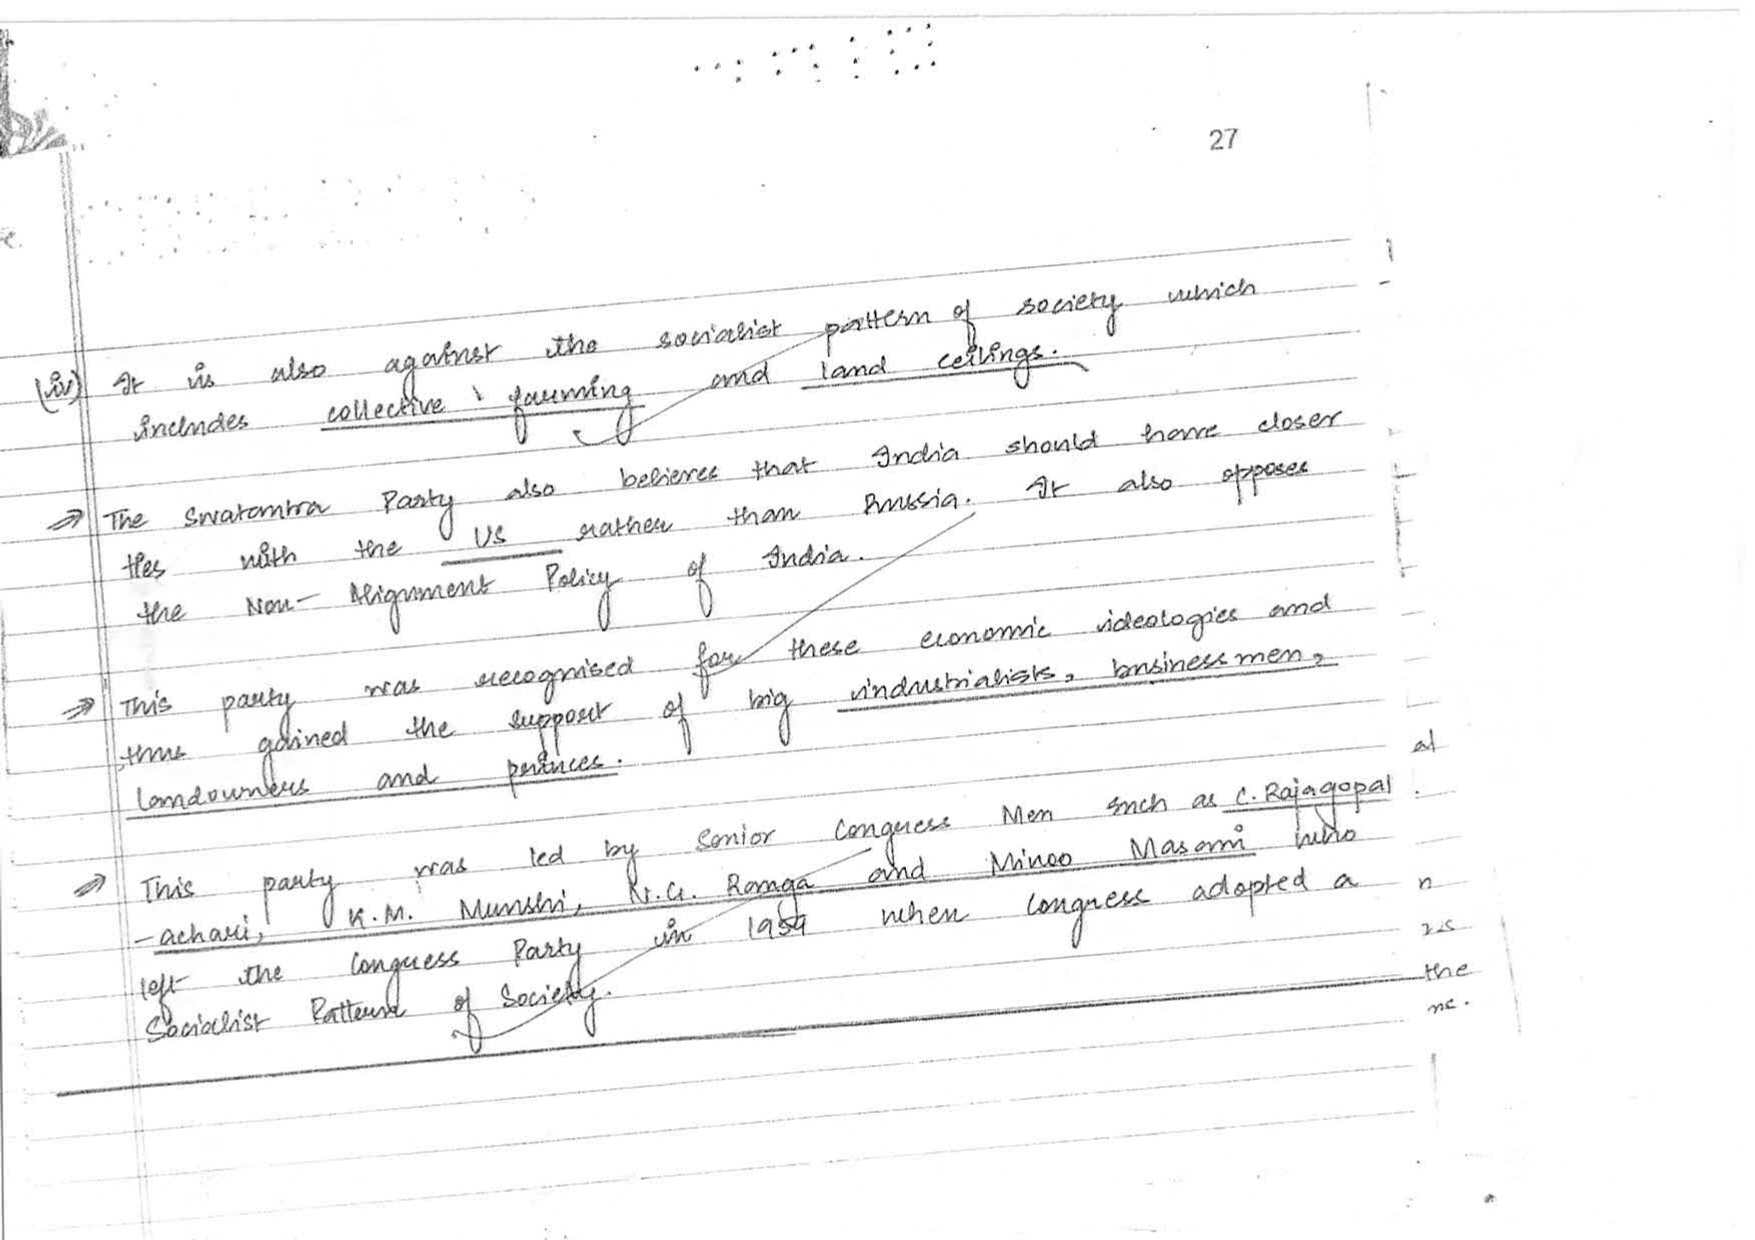 27
(iv) It is also against the socialist pattern of society which
includes collective farming and land ceilings.
⇒ The Swatantra Party also believes that India should have closer
ties with the US rather than Russia. It also opposes
the Non-Alignment Policy of India.
⇒ This party was recognised for these economic ideologies and
thus gained the support of big industrialists, businessmen,
landowners and princes.
⇒ This party was led by Senior Congress Men such as C. Rajagopal
-achari, K.M. Munshi, N.G. Ranga and Minoo Masani who
left the Congress Party in 1959 when Congress adopted a
Socialist Pattern of Society.
al
n
rs
the
ne.